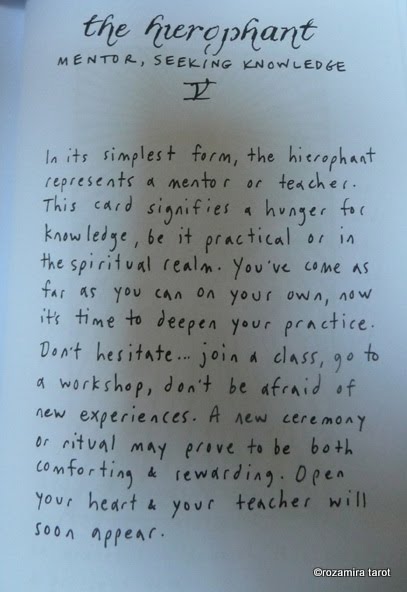 the hierophant
MENTOR, SEEKING KNOWLEDGE
V
In its simplest form, the hierophant
represents a mentor or teacher.
This card signifies a hunger for
knowledge, be it practical or in
the spiritual realm. You've come as
far as you can on your own, now
it's time to deepen your practice.
Don't hesitate... join a class, go to
a workshop, don't be afraid of
new experiences. A new ceremony
or ritual may prove to be both
comforting & rewarding. Open
your heart & your teacher will
soon appear.
©rozamira tarot